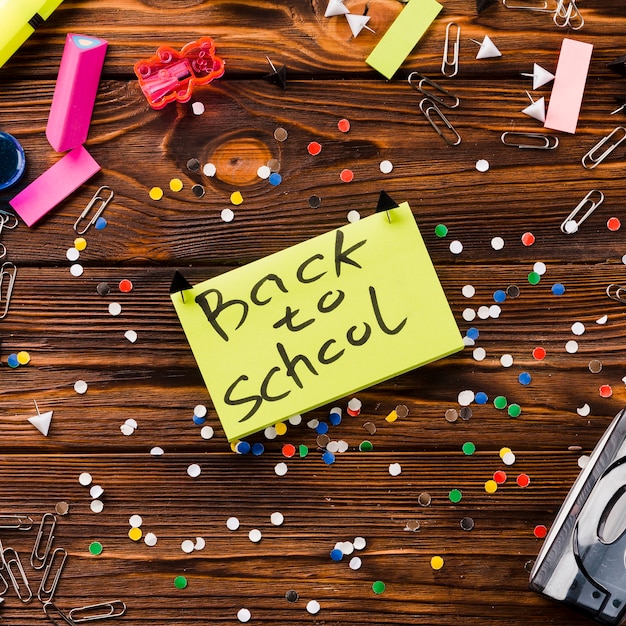 Back
to
School